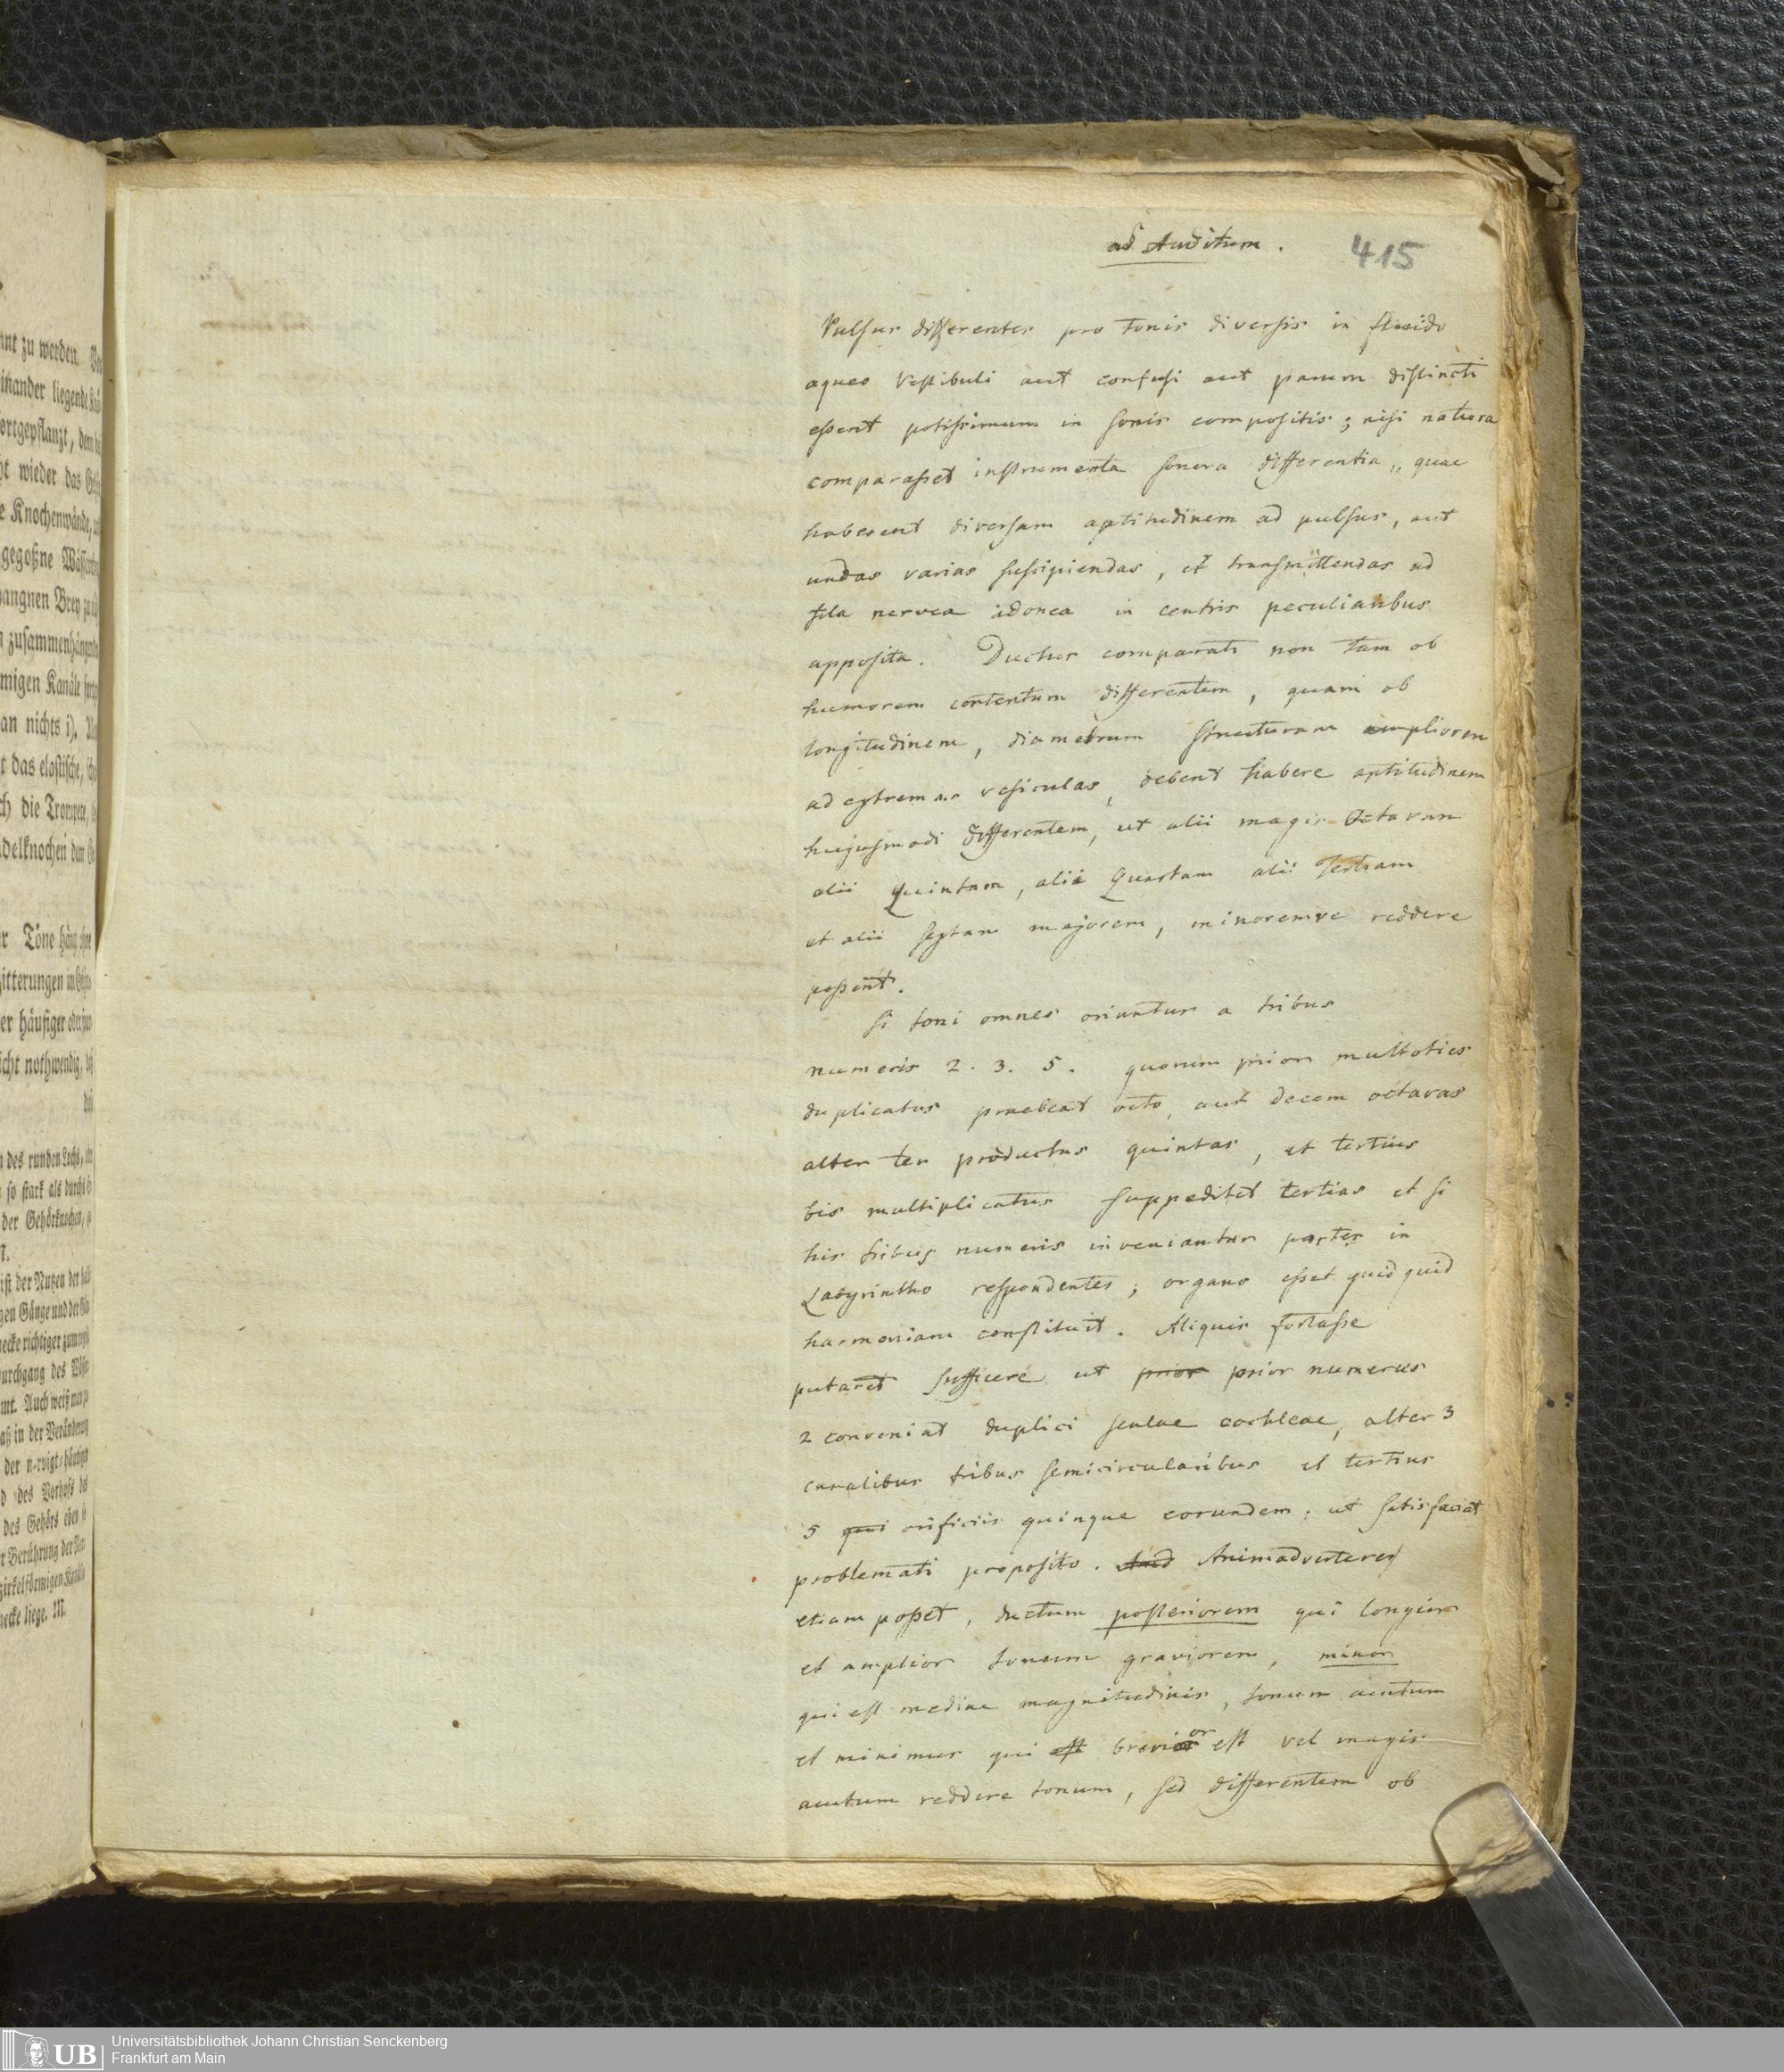 ad Auditum.
415
Pulsus differentes pro tonis diversis in fluido
aqueo vestibuli aut confusi aut parum distincti
essent potissimum in sonis compositis; nisi natura
comparasset instrumenta sonora differentia, quae
haberent diversam aptitudinem ad pulsus, aut
undas varias suscipiendas, et transmittendas ad
fila nervea idonea in centris peculiaribus
apposita. Ductus comparati non tam ob
humorem contentum differentem, quam ob
longitudinem, diametrum structuram ampliorem
ad extremas vesiculas, debent habere aptitudinem
hujusmodi differentem, ut alii magis Octavam
alii Quintam, alii Quartam alii Tertiam
et alii sextam majorem, minoremve reddere
possent.
Si toni omnes oriuntur a tribus
numeris 2. 3. 5. quorum prior multoties
duplicatus praebeat octo, aut decem octavas
alter ter productus quintas, et tertius
bis multiplicatus suppeditet tertias et si
his tribus numeris inveniantur partes in
Labyrintho respondentes; organo esset quidquid
harmoniam constituit. Aliquis fortasse
putaret sufficere ut prior prior numerus
2 conveniat duplici scalae cochleae, alter 3
canalibus tribus semicircularibus et tertius
5 qui orificiis quinque eorundem; ut satisfaciat
problemati proposito. And Animadverteret
etiam posset, ductum posteriorem qui longior
et amplior tonum graviorem, minor
qui est mediae magnitudinis, tonum acutum
et minimus qui est brevior est vel magis
acutum reddere tonum, sed differentem ob
nnt zu werden.
einander liegende
ortgepflanzt, dem
ht wieder das
e Knochenwände,
gegoßne
gangnen Brey
n zusammenhängende
rmigen Kanäle
an nichts i).
t das elastische,
ch die Trompete,
delknochen den
r Töne
itterungen
er häufiger oder
icht nothwendig,
n des runden Lochs,
so stark als durchs
der Gehörknochen,
ist der Nutzen der
gen Gänge und der
ecke richtiger
urchgang des
mt. Auch weiß man
aß in der Veränderung
der
d des Verhofs
des Gehörs eben
r Berührung der
zirkelförmigen Kanäle
necke liege. M.
UB
Universitätsbibliothek Johann Christian Senckenberg
Frankfurt am Main